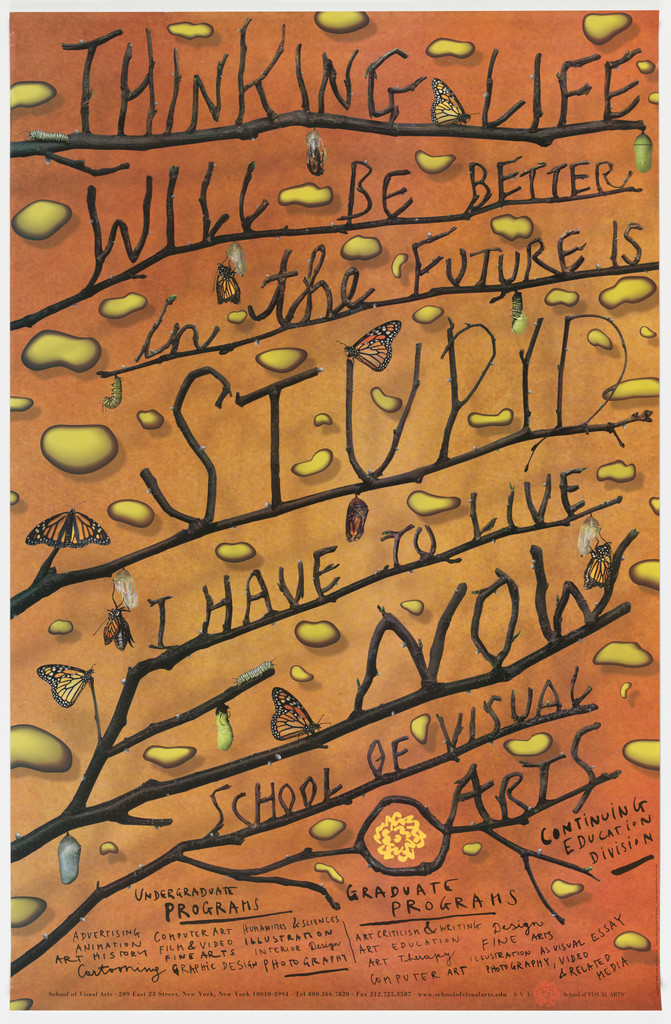 THINKING LIFE
WILL BE BETTER
in the FUTURE IS
STUPID
I HAVE TO LIVE
NOW
SCHOOL OF VISUAL
ARTS
CONTINUING
EDUCATION
DIVISION
UNDERGRADUATE
PROGRAMS
ADVERTISING COMPUTER ART HUMANITIES & SCIENCES
ANIMATION FILM & VIDEO ILLUSTRATION
ART HISTORY FINE ARTS INTERIOR Design
Cartooning GRAPHIC DESIGN PHOTOGRAPHY
GRADUATE
PROGRAMS
ART CRITICISM & WRITING Design
ART EDUCATION FINE ARTS
ART Therapy ILLUSTRATION AS VISUAL ESSAY
COMPUTER ART PHOTOGRAPHY, VIDEO
& RELATED
MEDIA
School of Visual Arts · 209 East 23 Street, New York, New York 10010-3994 · Tel 800.366.7820 · Fax 212.725.3587 · www.schoolofvisualarts.edu SVA School of VISUAL ARTS